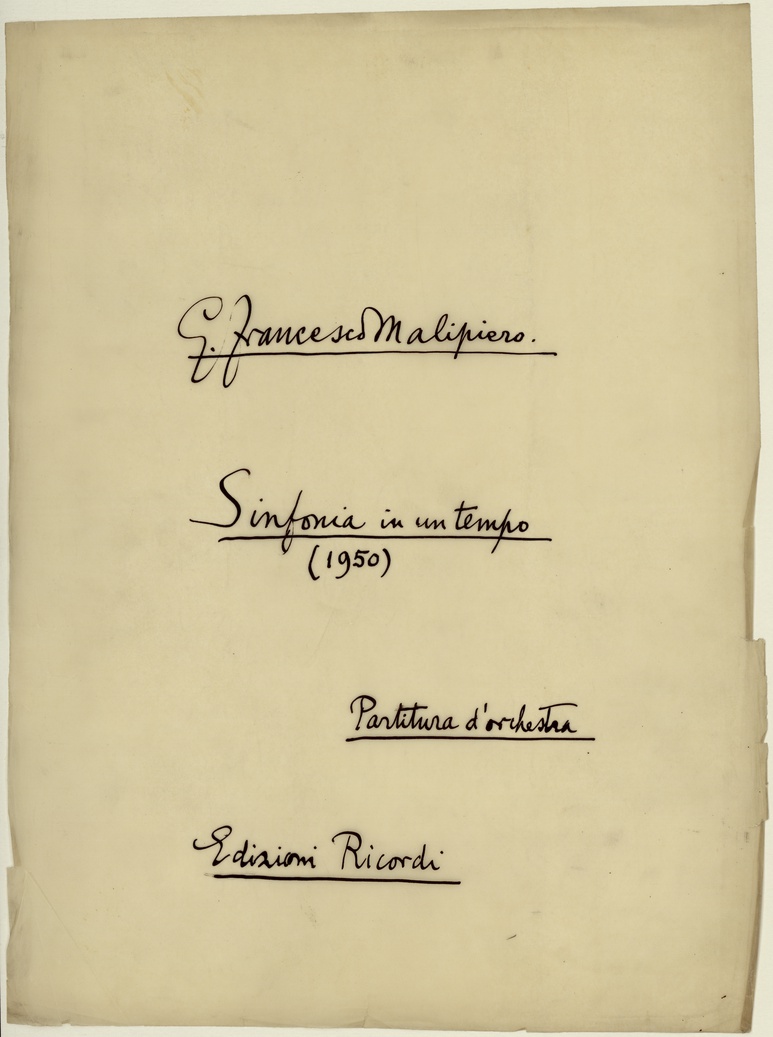 G. Francesco Malipiero.
Sinfonia in un tempo
(1950)
Partitura d'orchestra
Edizioni Ricordi